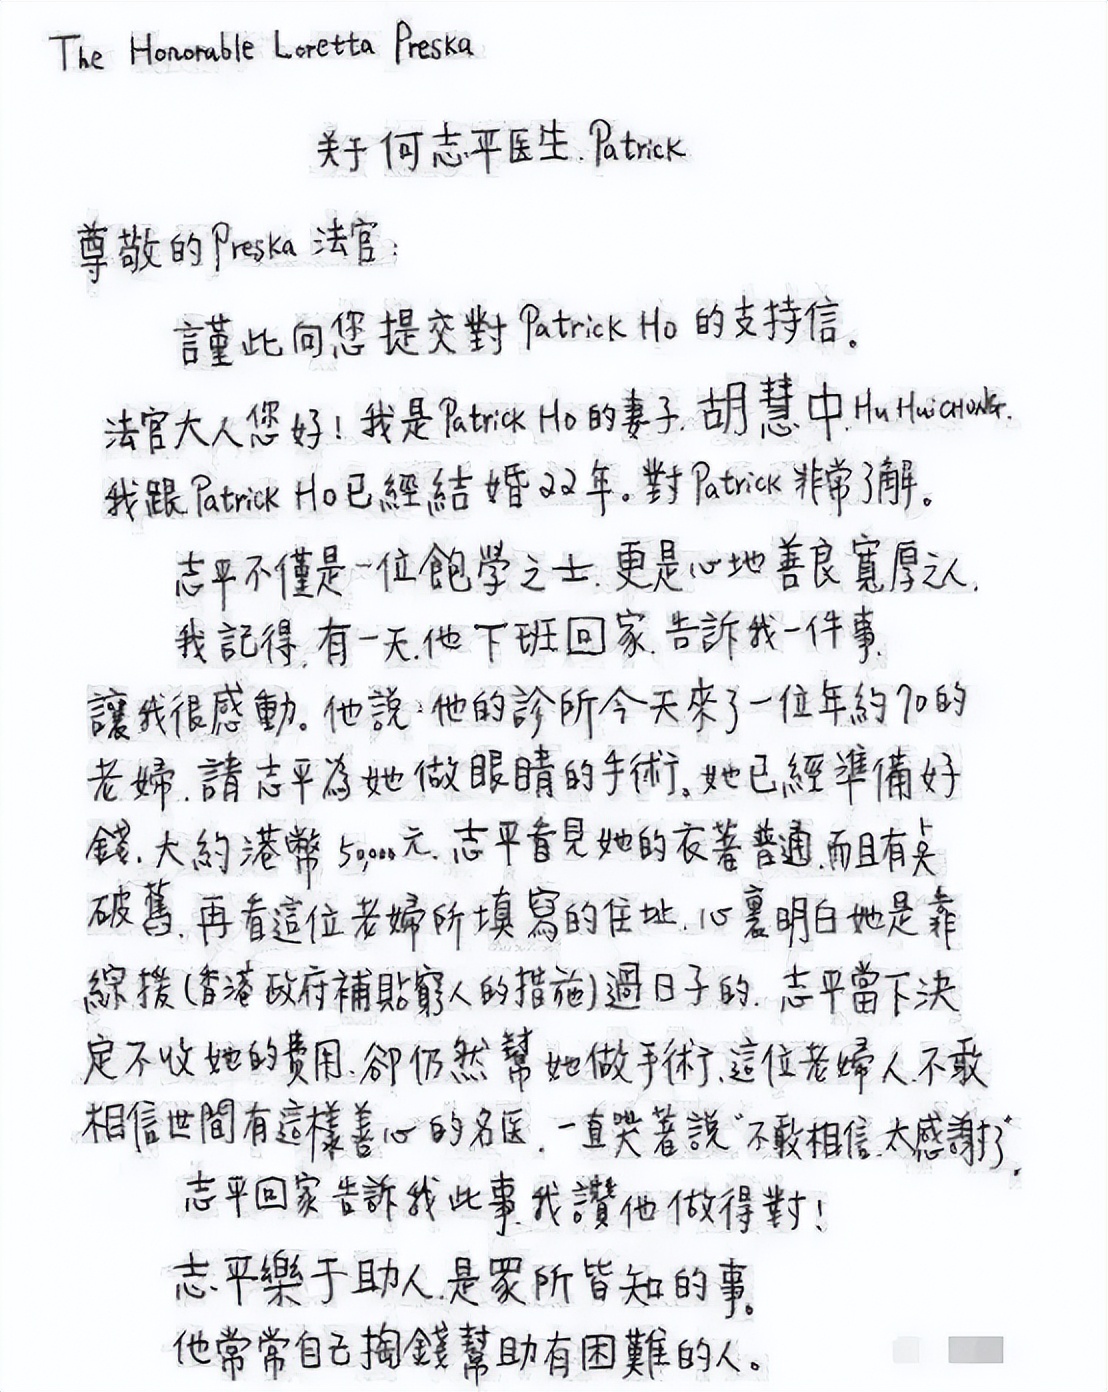 The Honorable Loretta Preska
关于何志平医生.Patrick
尊敬的Preska 法官:
謹此向您提交對Patrick Ho 的支持信。
法官大人您好!我是Patrick Ho的妻子.胡慧中.Hu HuiCHONG.
我跟Patrick Ho已經結婚22年。對Patrick非常了解。
志平不僅是一位飽學之士.更是心地善良寬厚之人.
我記得.有一天.他下班回家.告訴我一件事.
讓我很感動。他說:他的診所今天來了一位年約70的
老婦.請志平為她做眼睛的手術。她已經準備好
錢.大約港幣50,000元.志平看見她的衣著普通.而且有点
破舊.再看這位老婦所填寫的住址.心裏明白她是靠
綜援(香港政府補貼窮人的措施)過日子的.志平當下決
定不收她的費用.卻仍然幫她做手術.這位老婦人.不敢
相信世間有這樣善心的名医.一直哭著說"不敢相信.太感謝了".
志平回家告訴我此事.我讚他做得對!
志平樂于助人.是眾所皆知的事。
他常常自己掏錢幫助有困難的人。